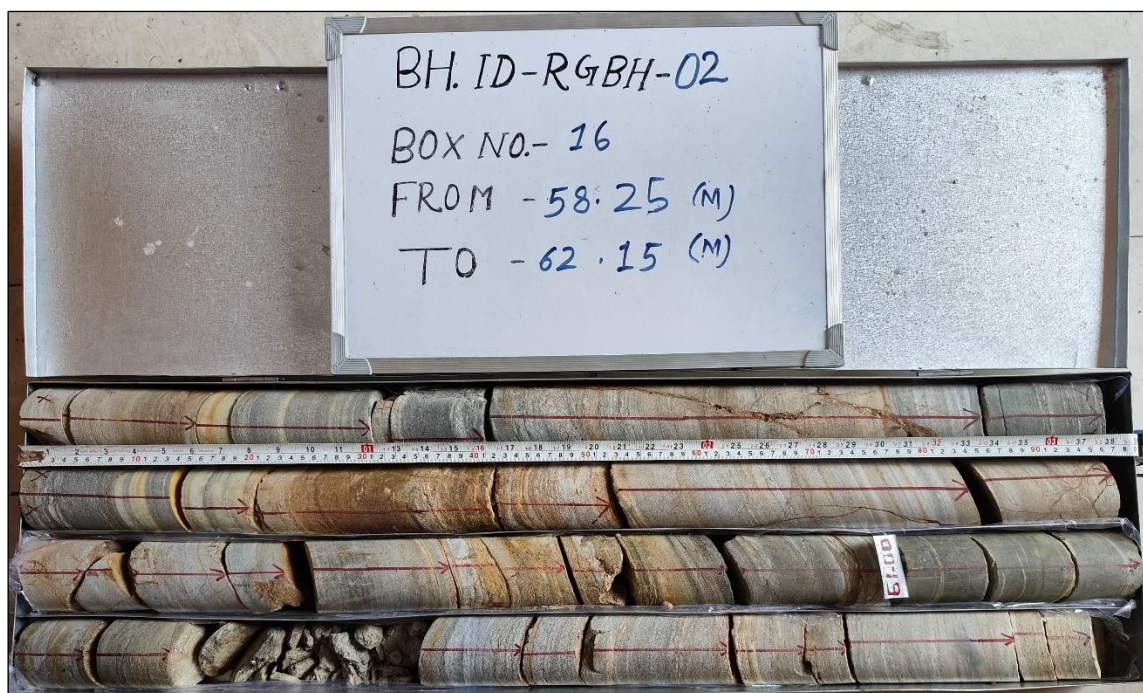 BH. ID-RGBH-02
BOX NO.- 16
FROM -58.25 (M)
TO -62.15 (M)
61.00